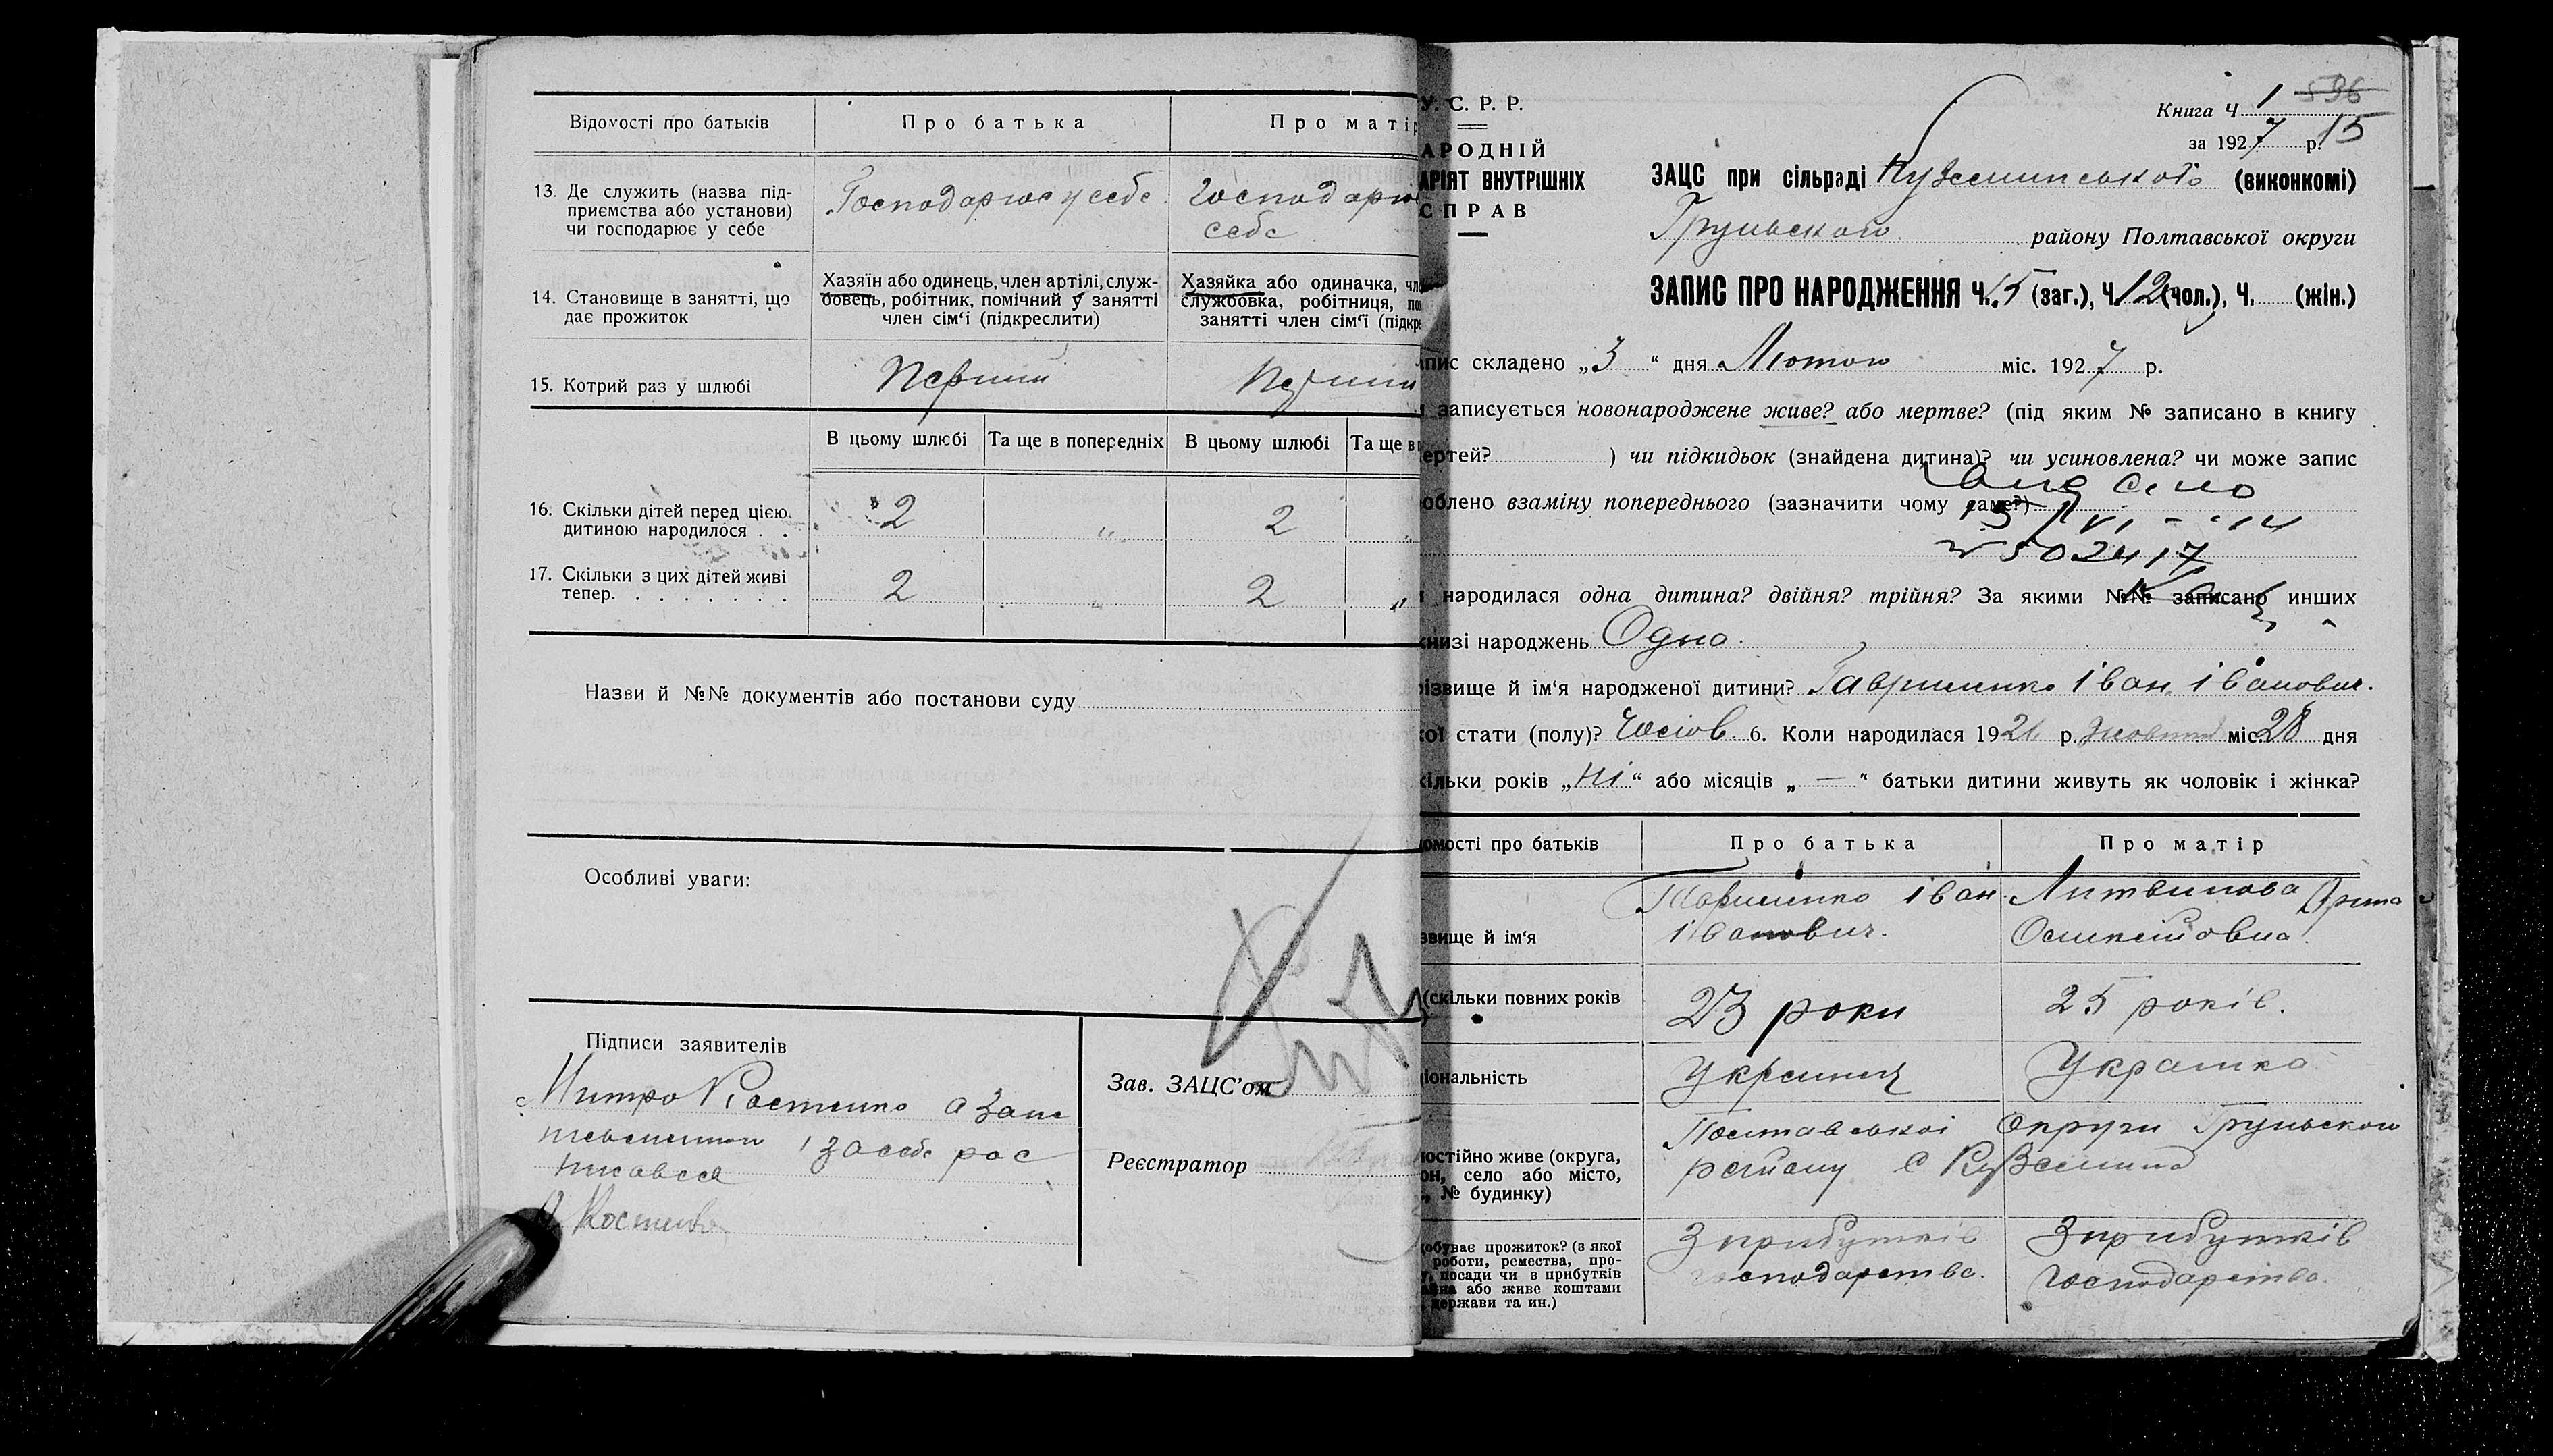 Відомості про батьків
Про батька
Про матір
13. Де служить (назва під-
приємства або установи)
чи господарює у себе
Господарює у себе
Господарю
себе
14. Становище в занятті, що
дає прожиток
Хазяїн або одинець, член артілі, служ-
бовець, робітник, помічний у занятті
член сім'ї (підкреслити)
Хазяйка або одиначка, чл
службовка, робітниця, по
занятті член сім'ї (підкр
15. Котрий раз у шлюбі
Перший
Перший
В цьому шлюбі
Та ще в попередніх
В цьому шлюбі
Та ще в
16. Скільки дітей перед цією
дитиною народилося . .
2 " 2 "
17. Скільки з цих дітей живі
тепер. . . . . . . .
2 " 2 "
Назви й №№ документів або постанови суду
Особливі уваги:
Підписи заявителів
Митро Костенко а за
за себе рос
писався
Костенко
Зав. ЗАЦС'ом
Реєстратор
У. С. Р. Р.
АРОДНІЙ
АРІЯТ ВНУТРІШНІХ
СПРАВ
596
Книга Ч 1
за 1927 р. 15
ЗАЦС при сільраді Куземинського (виконкомі)
Груньского району Полтавської округи
ЗАПИС ПРО НАРОДЖЕННЯ Ч. 15 (заг.), Ч. 12 (чол.), Ч. (жін.)
пис складено „3" дня Лютого міс. 1927 р.
записується новонароджене живе? або мертве? (під яким № записано в книгу
ертей? ) чи підкидьок (знайдена дитина)? чи усиновлена? чи може запис
облено взаміну попереднього (зазначити чому саме?)
502417
народилася одна дитина? двійня? трійня? За якими №№ записано инших
низі народжень Одна.
ізвище й ім'я народженої дитини? Гавриленко Іван Іванович.
ої стати (полу)? Чолов. 6. Коли народилася 192 р. міс. 28 дня
ільки років „Ні" або місяців „—" батьки дитини живуть як чоловік і жінка?
омості про батьків
Про батька
Про матір
звище й ім'я
Гавриленко Іван
Іванович.
Литвинова
(скільки повних років
23 роки
25 років.
іональність
Українец
Українка
постійно живе (округа,
он, село або місто,
., № будинку)
Полтавської Округи Груньского
району с Куземина
обуває прожиток? (з якої
роботи, ремества, про-
у, посади чи з прибутків
айна або живе коштами
держави та ин.)
З прибутків
господарства.
З прибутків
господарства.